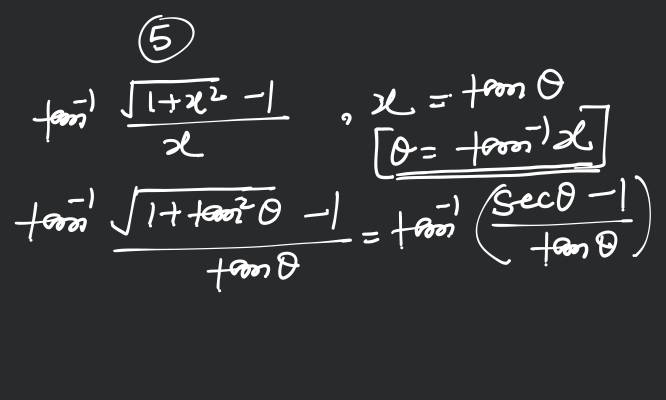 ⑤
tan⁻¹ (√(1+x²) − 1)/x , x = tan θ
[θ = tan⁻¹x]
tan⁻¹ (√(1+tan²θ) − 1)/(tan θ) = tan⁻¹ ((secθ − 1)/(tan θ))